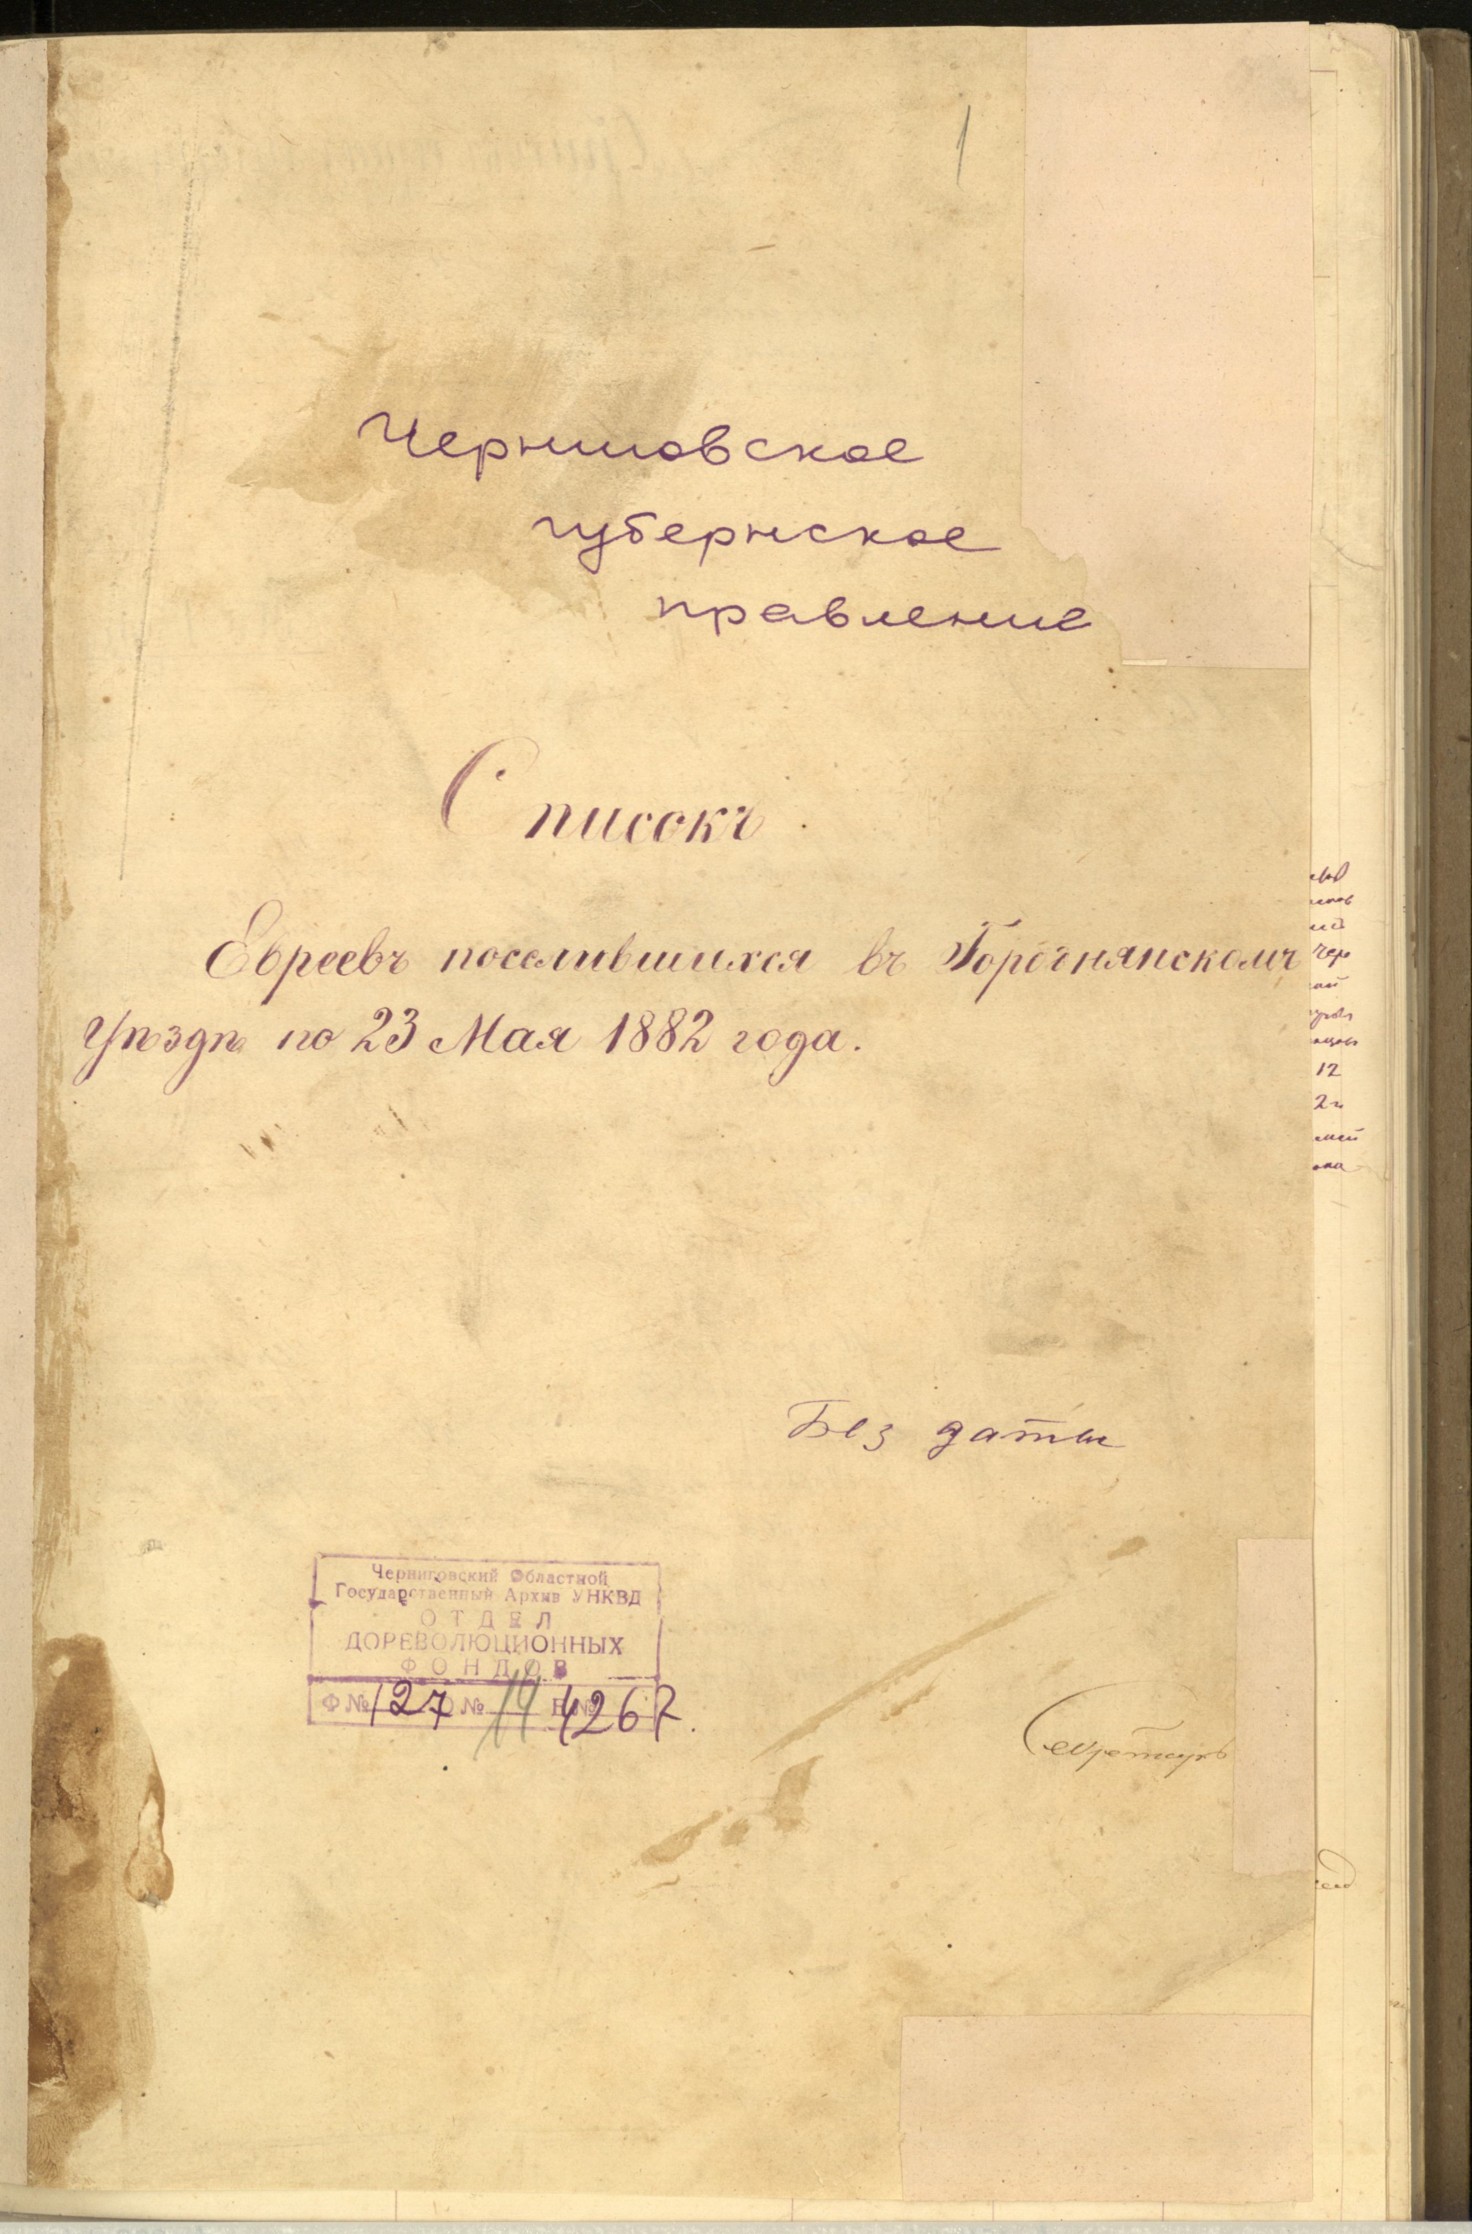 1
Черниговское
губернское
правление
Списокъ
Евреевъ поселившихся въ Городнянскомъ
Уѣздѣ по 23 Мая 1882 года.
Без даты
Черниговский Областной
Государственный Архив УНКВД
ОТДЕЛ
ДОРЕВОЛЮЦИОННЫХ
ФОНДОВ
Ф № 127 О № 14 Е № 4267.
Секретарь
12